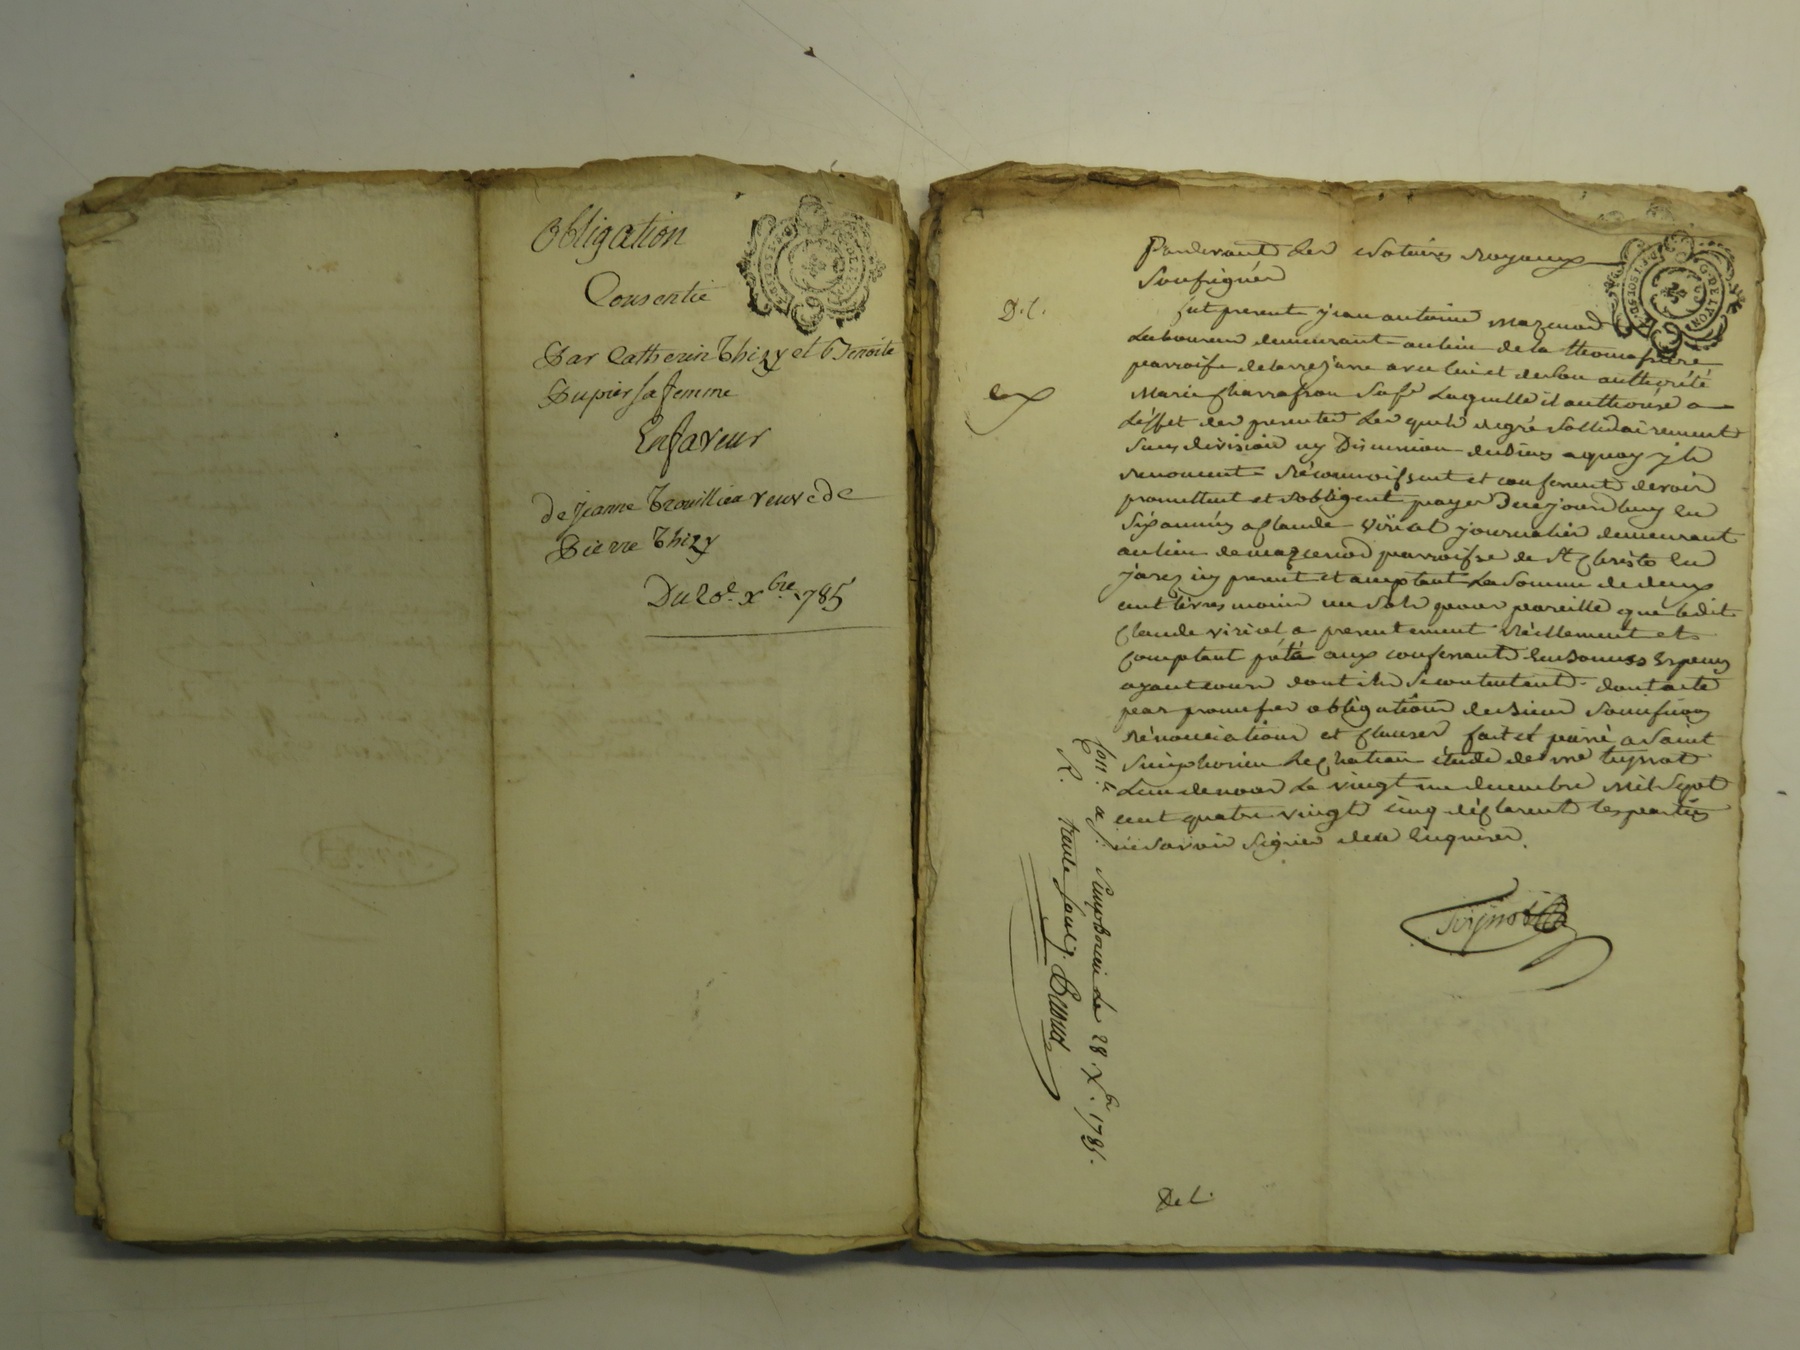 Obligation
Consentie
Par Catherin Thizy et Benoite
Dupier sa femme
En faveur
de Jeanne Trouillier veuve de
Pierre Thizy
Du 20e. xbre 1785
Pardevant les Notaires royaux
soussignés
D.C.
fut present jean antoine mazenod
Laboureur demeurant au lieu de la thomassiere
parroisse de larrejasse avec lui et de son authorité
Marie Charrasson sa fe Laquelle il authorise a
L'effet des presentes Les quels de gré solidairement
sans division ny Discussion de biens a quoy ils
renoncent reconnoissent et confessent devoir
promettent et s'obligent payer Dicejourdhuy en
six années a Claude viricel journalier demeurant
au lieu de mazenod parroisse de St Christo en
jarez icy present et acceptant La somme de deux
cent livres moins un sols pour pareille que ledit
Claude viricel a presentement réellement et
Comptant prêté aux confessants en bonnes Especes
ayant cours dont ils se contentent. dont acte
par promesses obligations de biens soumissions
rénonciations et Clauses fait et passé a Saint
Simphorien le Chateau étude de me
L'un de nous Le vingt un decembre Mil Sept
cent quatre vingt cinq déclarent les parties
ne savoir signer de ce Enquises.
Conlé a St. Simphorien Le 28 xbr. 1785.
R. trente sous
Del.